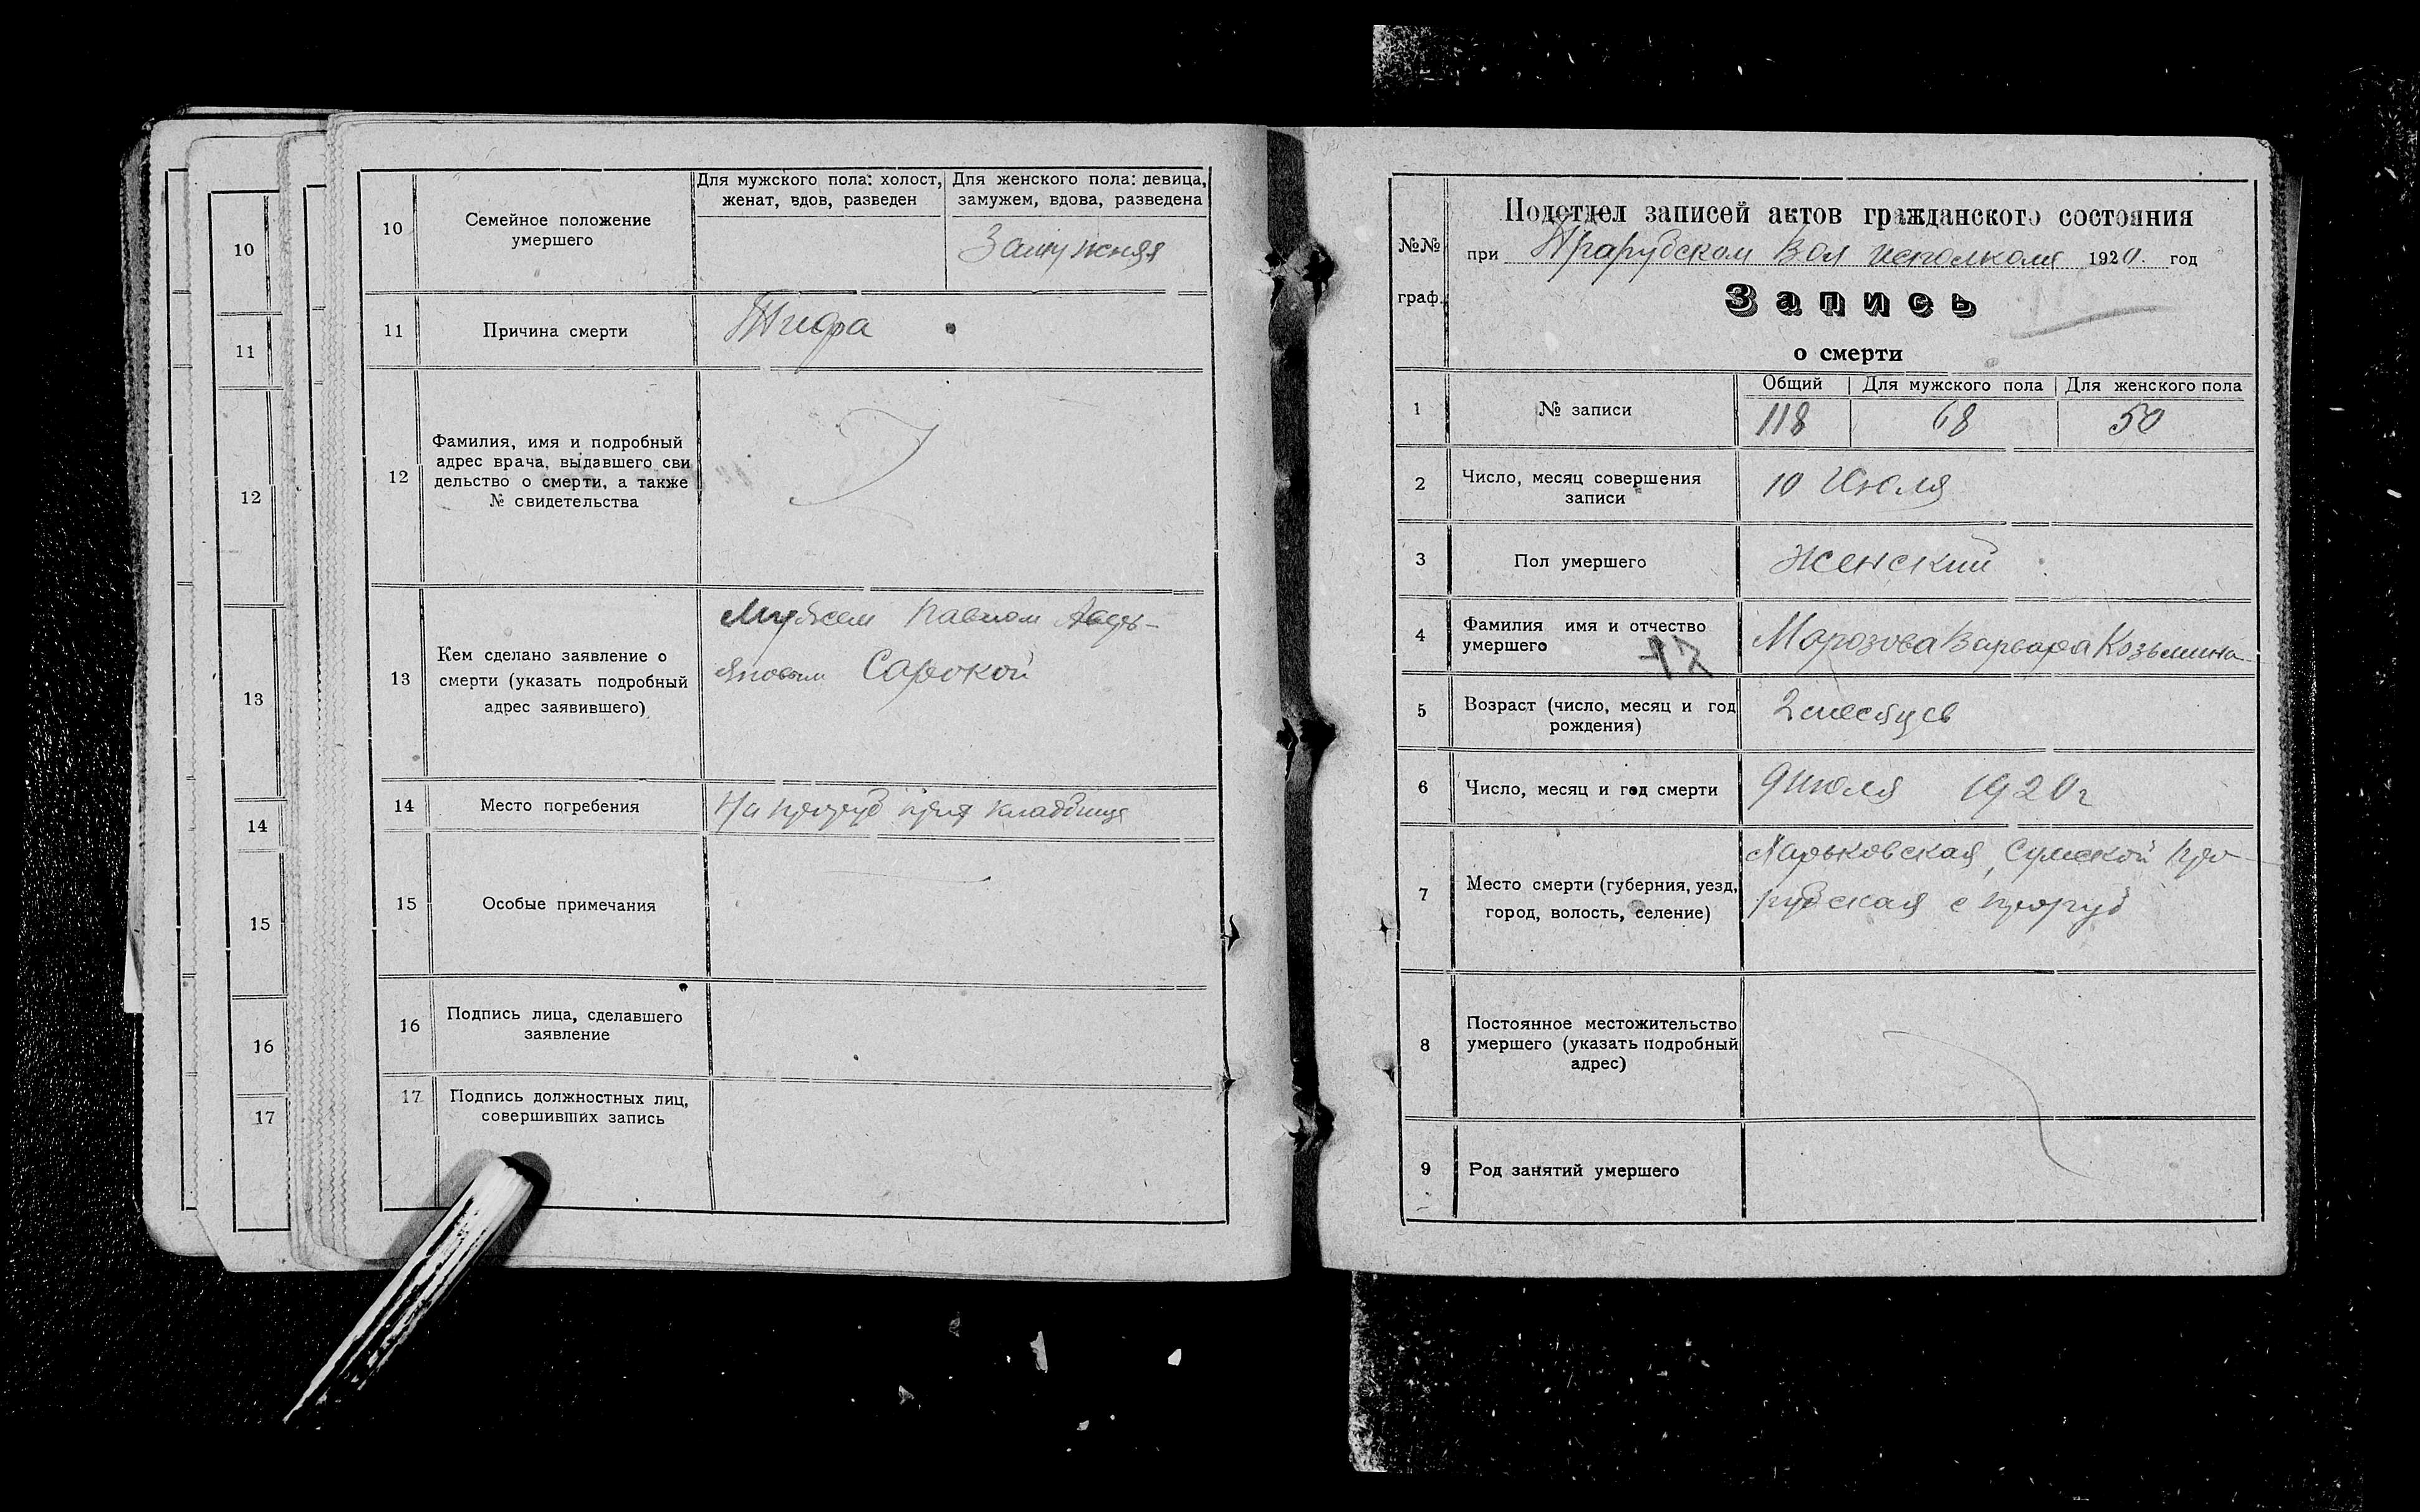 10
11
12
13
14
15
16
17
10
Семейное положение
умершего
Для мужского пола: холост,
женат, вдов, разведен
Для женского пола: девица,
замужем, вдова, разведена
Замужняя
11
Причина смерти
Тифа
12
Фамилия, имя и подробный
адрес врача, выдавшего сви
дельство о смерти, а также
№ свидетельства
13
Кем сделано заявление о
смерти (указать подробный
адрес заявившего)
Мужем Павлом Авдъ-
яновым Сорокой
14
Место погребения
На прируб при кладбище
15
Особые примечания
16
Подпись лица, сделавшего
заявление
17
Подпись должностных лиц,
совершивших запись
№№
граф.
Подотдел записей актов гражданского состояния
при Прарубском Вол исполкоме 1920. год
Запись
о смерти
1
№ записи
Общий
Для мужского пола
Для женского пола
118
68
50
2
Число, месяц совершения
записи
10 Июля
3
Пол умершего
Женский
4
Фамилия имя и отчество
умершего
Морозова Варвара Козьмина
5
Возраст (число, месяц и год
рождения)
2 месяцев
6
Число, месяц и год смерти
9 июля 1920 г
7
Место смерти (губерния, уезд,
город, волость, селение)
Харьковская, Сумской про
рубская с проруб
8
Постоянное местожительство
умершего (указать подробный
адрес)
9
Род занятий умершего